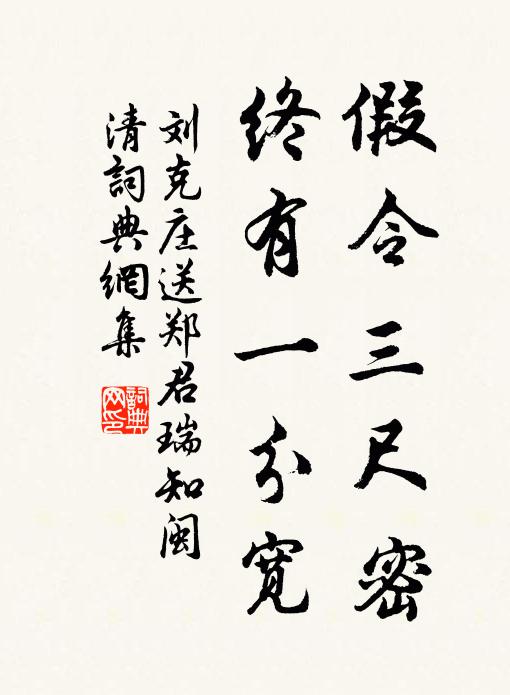 假令三尺密
终有一分宽
刘克庄送郑君瑞知闽
清詞典網集
詞典
网印